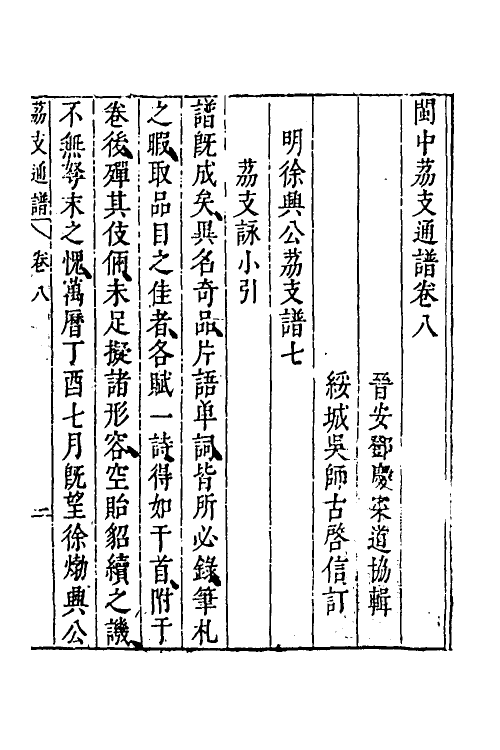 閩中荔支通譜卷八
晉安鄧慶寀道協輯
綏城吳師古啓信訂
明徐興公荔支譜七
荔支詠小引
譜旣成矣異名奇品片語单詞皆所必錄筆札
之暇取品目之佳者各賦一詩得如干首附于
卷後殫其伎倆未足擬諸形容空貽貂續之譏
不無弩末之愧萬曆丁酉七月旣望徐𤊹興公
荔支通譜 卷八 二